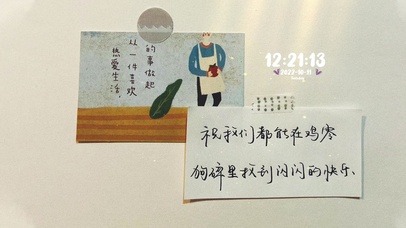 热爱生活，
从一件喜欢
的事做起
12:21:13
祝我们都能在鸡零
狗碎里找到闪闪的快乐.